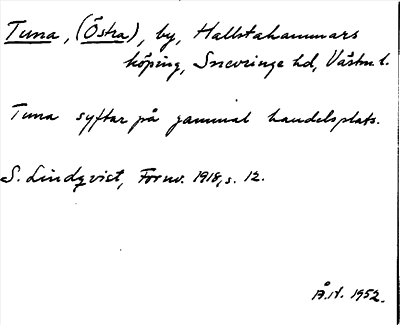 Tuna, (Östra), by, Hallstahammars
köping, Snevringe hd, Västm. l.
Tuna syftar på gammal handelsplats.
S. Lindqvist, Fornv. 1918, s. 12.
Å.N. 1952.